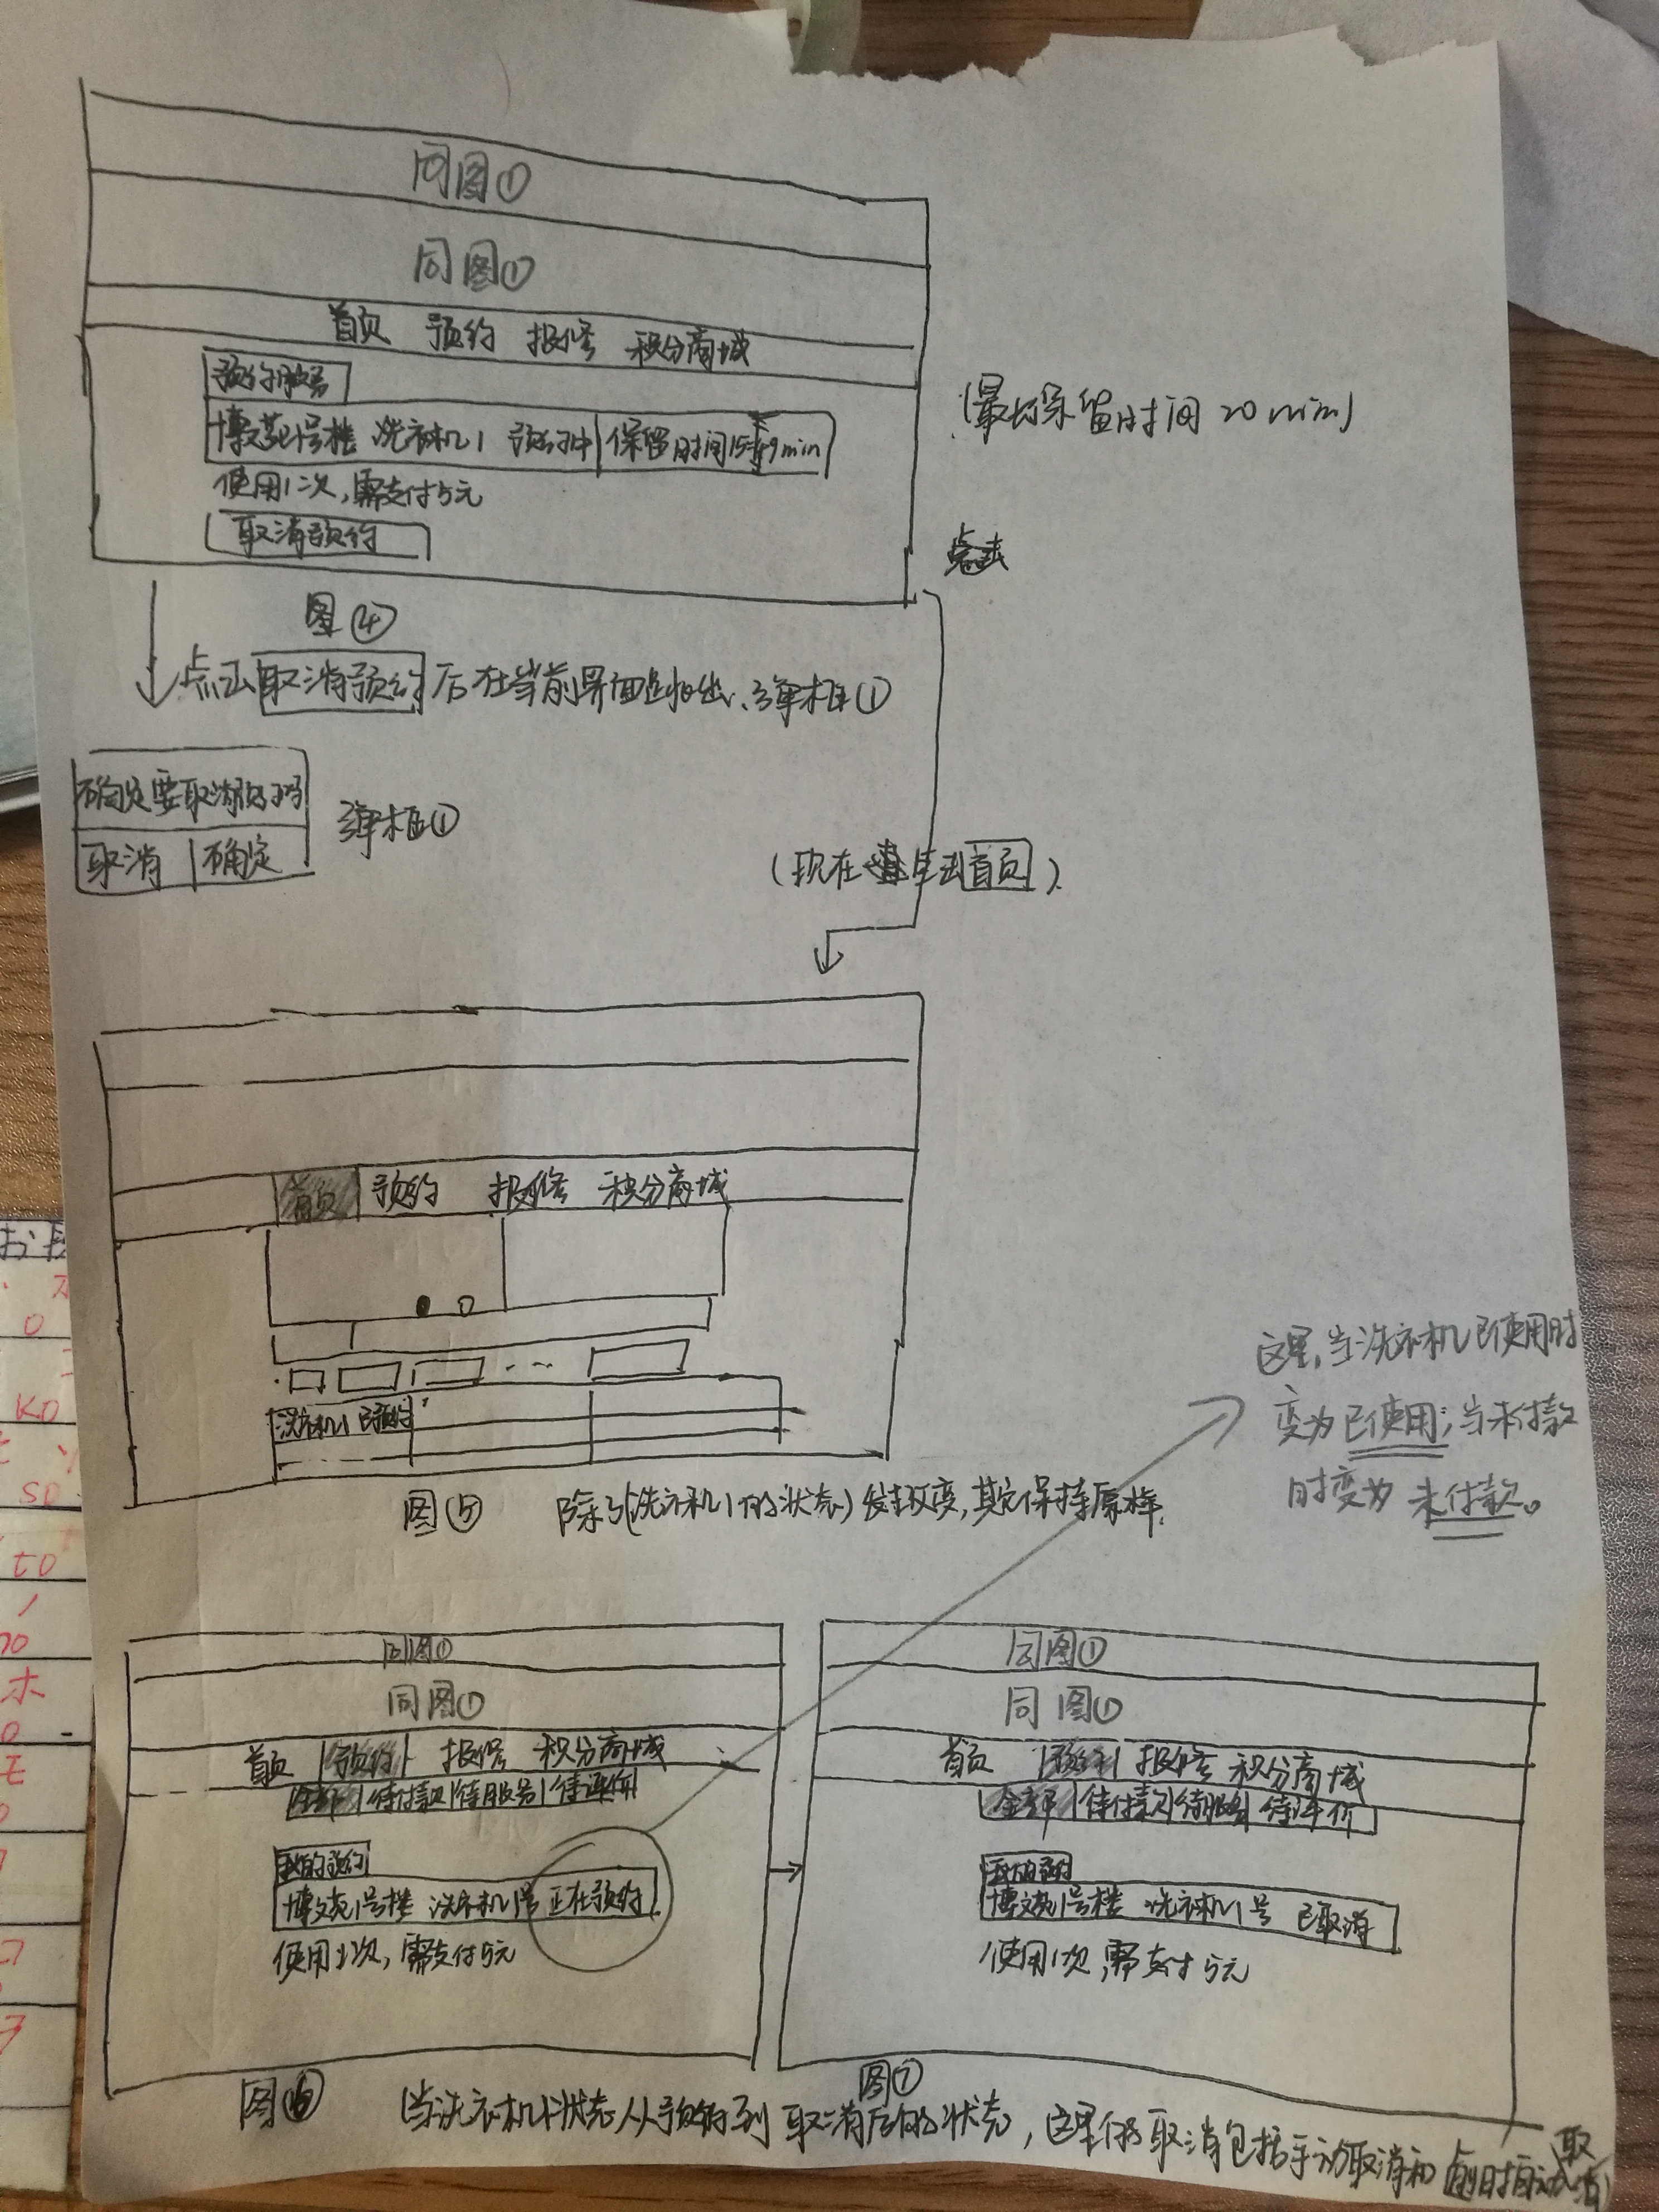 同图①
同图①
首页 预约 报修 积分商城
预约服务
博文苑1号楼 洗衣机1 预约中 保留时间15:49min
(最长保留时间20min)
使用1次,需支付5元
取消预约
点击
图④
点击取消预约后在当前界面弹出弹框①
确定要取消预约吗
取消 确定
弹框①
(现在点击首页)
首页 预约 报修 积分商城
洗衣机1 已预约
图⑤ 除了(洗衣机1的状态)发生改变,其它保持原样.
这里,当洗衣机已使用时
变为已使用;当未付款
时变为未付款。
同图①
同图①
首页 预约 报修 积分商城
全部 待付款 待服务 待评价
我的预约
博文苑1号楼 洗衣机1号 正在预约
使用1次,需支付5元
图⑥
同图①
同图①
首页 预约 报修 积分商城
全部 待付款 待服务 待评价
我的预约
博文苑1号楼 洗衣机1号 已取消
使用1次,需支付5元
图⑦
(当洗衣机1状态从预约到取消后的状态,这里的取消包括手动取消和到时自动取消)